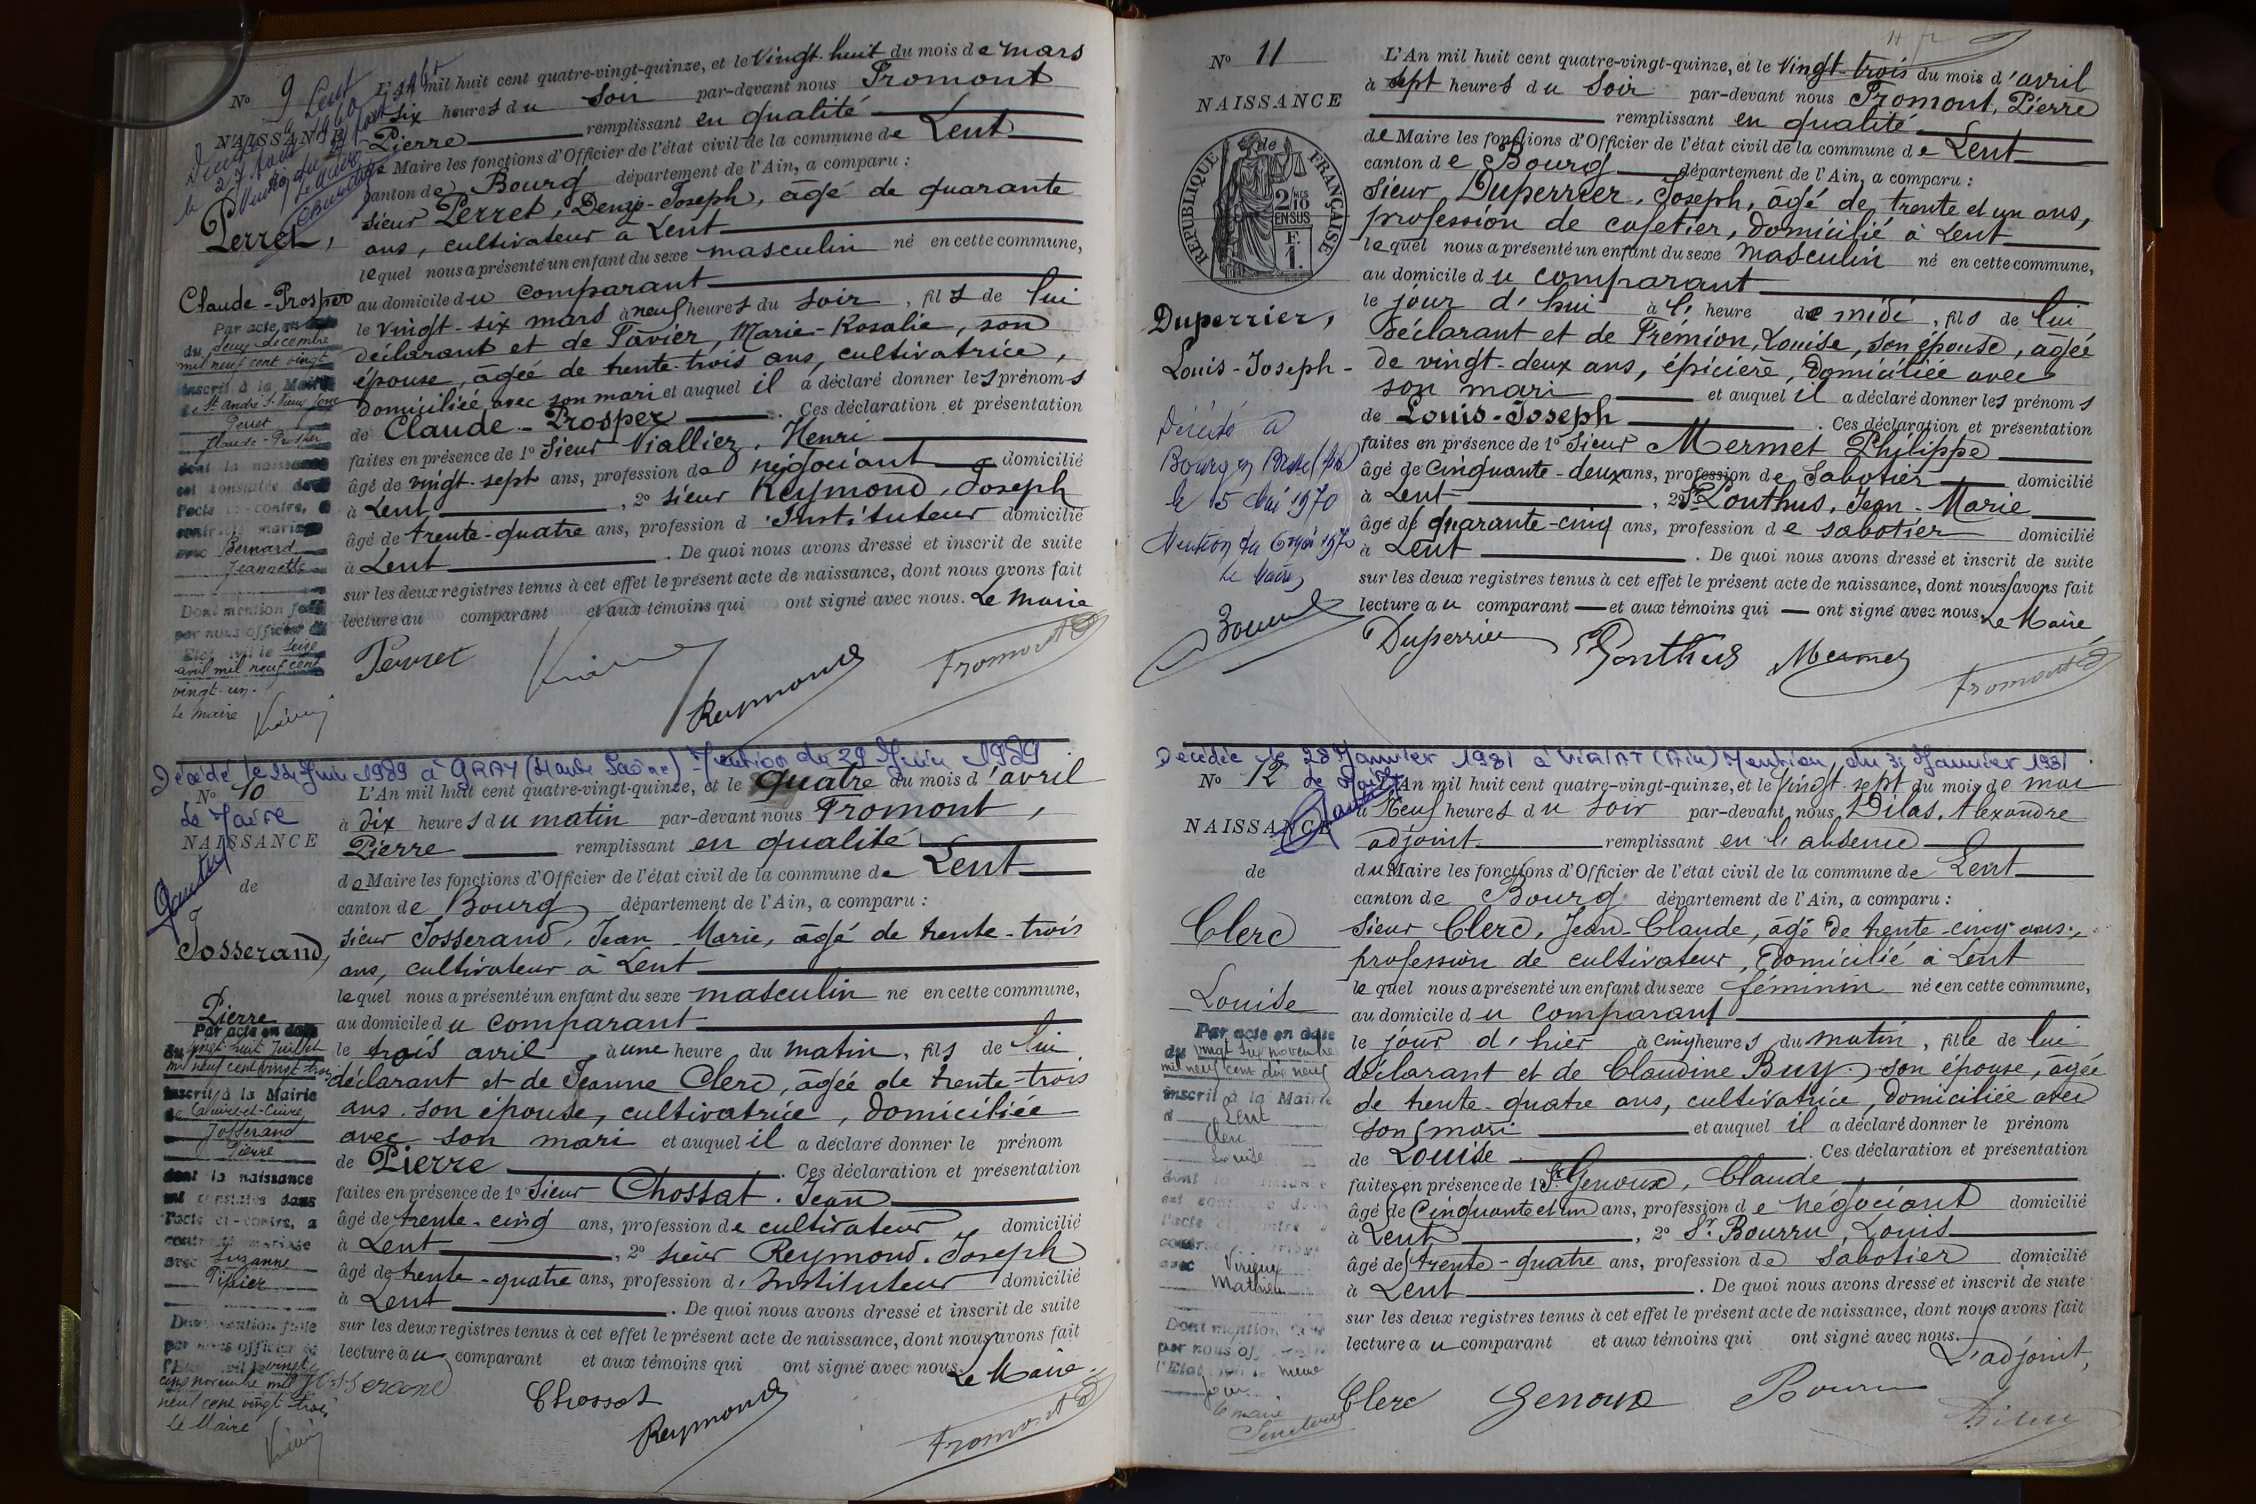 N° 9
NAISSANCE
Perret,
Claude-Prosper
Par acte en date
du deux décembre
mil neuf cent vingt
inscrit à la Mairie
Perret
Claude-Prosper
dont la naissance
est constatée dans
l'acte ci-contre, a
contracté mariage
avec Bernard
Jeannette
Dont mention faite
par nous officier de
l'Etat civil le seize
avril mil neuf cent
vingt-un.
Le Maire
L'An mil huit cent quatre-vingt-quinze, et le vingt-huit du mois de mars
à six heures du soir par-devant nous Fromont
Pierre remplissant en qualité
de Maire les fonctions d'Officier de l'état civil de la commune de Lent
canton de Bourg département de l'Ain, a comparu :
sieur Perret, Denys-Joseph, âgé de quarante
ans, cultivateur à Lent
lequel nous a présenté un enfant du sexe masculin né en cette commune,
au domicile du comparant
le vingt-six mars à neuf heures du soir, fils de lui
déclarant et de Pavier, Marie-Rosalie, son
épouse, âgée de trente-trois ans, cultivatrice,
domiciliée avec son mari et auquel il a déclaré donner les prénoms
de Claude-Prosper. Ces déclaration et présentation
faites en présence de 1° sieur Viallier, Henri
âgé de vingt-sept ans, profession de négociant domicilié
à Lent, 2° sieur Reymond, Joseph
âgé de trente-quatre ans, profession d'Instituteur domicilié
à Lent. De quoi nous avons dressé et inscrit de suite
sur les deux registres tenus à cet effet le présent acte de naissance, dont nous avons fait
lecture au comparant et aux témoins qui ont signé avec nous. Le Maire
Perret
Reymond
Fromont
Décédé le 24 Juin 1989 à GRAY (Haute Saône) - Mention du 29 Juin 1989
Le Maire
N° 10
NAISSANCE
de
Josserand,
Pierre
Par acte en date
du vingt-huit Juillet
mil neuf cent vingt-trois
inscrit à la Mairie
de Caluire-et-Cuire
Josserand
Pierre
dont la naissance
est constatée dans
l'acte ci-contre, a
contracté mariage
avec Suzanne
Dont mention faite
par nous officier de
l'Etat civil le vingt
cinq novembre mil
neuf cent vingt trois
Le Maire
L'An mil huit cent quatre-vingt-quinze, et le quatre du mois d'avril
à dix heures du matin par-devant nous Fromont,
Pierre remplissant en qualité
de Maire les fonctions d'Officier de l'état civil de la commune de Lent
canton de Bourg département de l'Ain, a comparu :
sieur Josserand, Jean-Marie, âgé de trente-trois
ans, cultivateur à Lent
lequel nous a présenté un enfant du sexe masculin né en cette commune,
au domicile du comparant
le trois avril à une heure du matin, fils de lui
déclarant et de Jeanne Clerc, âgée de trente-trois
ans son épouse, cultivatrice, domiciliée
avec son mari et auquel il a déclaré donner le prénom
de Pierre. Ces déclaration et présentation
faites en présence de 1° Sieur Chossat. Jean
âgé de trente-cinq ans, profession de cultivateur domicilié
à Lent, 2° sieur Reymond. Joseph
âgé de trente-quatre ans, profession d'Instituteur domicilié
à Lent. De quoi nous avons dressé et inscrit de suite
sur les deux registres tenus à cet effet le présent acte de naissance, dont nous avons fait
lecture au comparant et aux témoins qui ont signé avec nous. Le Maire
Josserand
Chossat
Reymond
Fromont
N° 11
NAISSANCE
RÉPUBLIQUE FRANÇAISE
2/10 MES EN SUS
F. 1.
Duperrier,
Louis-Joseph-
Décédé à
Bourg en Bresse (Ain)
le 5 Mai 1970
Mention du 6 Mai 1970
Le Maire,
L'An mil huit cent quatre-vingt-quinze, et le vingt-trois du mois d'avril
à sept heures du soir par-devant nous Fromont, Pierre
remplissant en qualité
de Maire les fonctions d'Officier de l'état civil de la commune de Lent
canton de Bourg département de l'Ain, a comparu :
sieur Duperrier, Joseph, âgé de trente et un ans,
profession de cafetier, domicilié à Lent
lequel nous a présenté un enfant du sexe masculin né en cette commune,
au domicile du comparant
le jour d'hui à l' heure de midi, fils de lui
déclarant et de Prémion, Louise, son épouse, âgée
de vingt-deux ans, épicière, domiciliée avec
son mari et auquel il a déclaré donner les prénoms
de Louis-Joseph. Ces déclaration et présentation
faites en présence de 1° Sieur Mermet Philippe
âgé de cinquante-deux ans, profession de Sabotier domicilié
à Lent, 2° Sr Ponthus, Jean-Marie
âgé de quarante-cinq ans, profession de sabotier domicilié
à Lent. De quoi nous avons dressé et inscrit de suite
sur les deux registres tenus à cet effet le présent acte de naissance, dont nous avons fait
lecture au comparant et aux témoins qui ont signé avec nous. Le Maire
Duperrier
Ponthus
Mermet
Fromont
Décédée le 28 Janvier 1981 à VIRIAT (Ain) Mention du 31 Janvier 1981
Le Maire
N° 12
NAISSANCE
de
Clerc
Louise
Par acte en date
du vingt six novembre
mil neuf cent dix neuf
inscrit à la Mairie
d Lent
Clerc
Louise
avec
Mathieu
Dont mention faite
même
jour
Le maire
L'An mil huit cent quatre-vingt-quinze, et le vingt-sept du mois de mai
à Neuf heures du soir par-devant nous Dilas, Alexandre
adjoint remplissant en l'absence
du Maire les fonctions d'Officier de l'état civil de la commune de Lent
canton de Bourg département de l'Ain, a comparu :
sieur Clerc, Jean-Claude, âgé de trente-cinq ans,
profession de cultivateur, domicilié à Lent
lequel nous a présenté un enfant du sexe féminin née en cette commune,
au domicile du comparant
le jour d'hier à cinq heures du matin, fille de lui
déclarant et de Claudine Buy, son épouse, âgée
de trente-quatre ans, cultivatrice, domiciliée avec
son mari et auquel il a déclaré donner le prénom
de Louise. Ces déclaration et présentation
faites en présence de 1° Sr Genoux, Claude
âgé de Cinquante et un ans, profession de négociant domicilié
à Lent, 2° Sr Bourru, Louis
âgé de trente-quatre ans, profession de sabotier domicilié
à Lent. De quoi nous avons dressé et inscrit de suite
sur les deux registres tenus à cet effet le présent acte de naissance, dont nous avons fait
lecture au comparant et aux témoins qui ont signé avec nous.
L'adjoint,
Clerc
Genoux